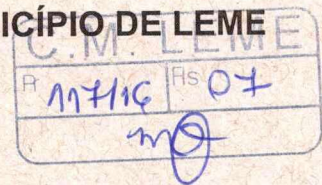 ICÍPIO DE LEME
C.M. LEME
P 117/16 Fls 07